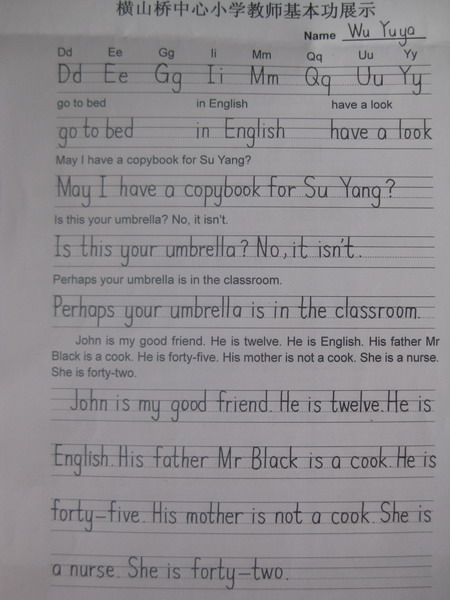 横山桥中心小学教师基本功展示
Name Wu Yuya
Dd Ee Gg Ii Mm Qq Uu Yy
Dd Ee Gg Ii Mm Qq Uu Yy
go to bed in English have a look
go to bed in English have a look
May I have a copybook for Su Yang?
May I have a copybook for Su Yang?
Is this your umbrella? No, it isn't.
Is this your umbrella? No, it isn't.
Perhaps your umbrella is in the classroom.
Perhaps your umbrella is in the classroom.
John is my good friend. He is twelve. He is English. His father Mr
Black is a cook. He is forty-five. His mother is not a cook. She is a nurse.
She is forty-two.
John is my good friend. He is twelve. He is
English. His father Mr Black is a cook. He is
forty-five. His mother is not a cook. She is
a nurse. She is forty-two.